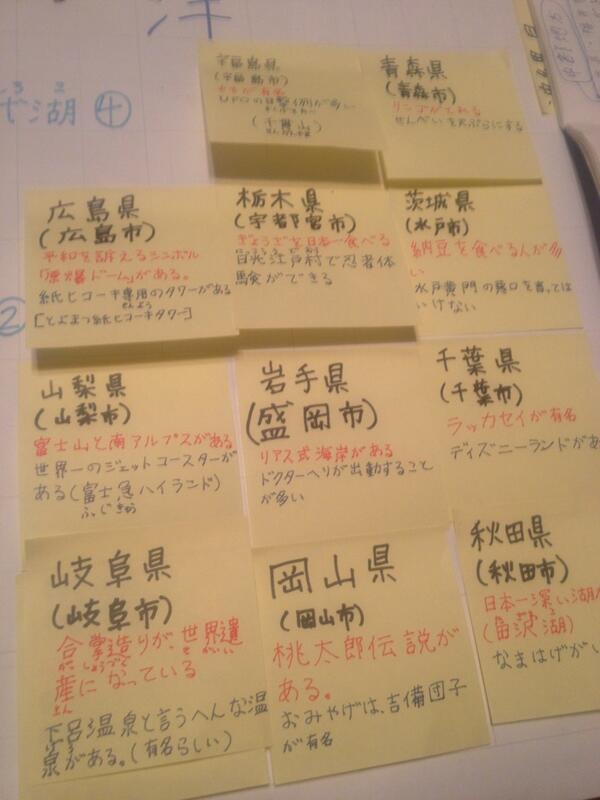 洋
湖 ④
②
福島県
(福島市)
モモが有名
UFOの目撃例が多い
(千貫山)
青森県
(青森市)
リンゴがとれる
せんべいを天ぷらにする
広島県
(広島市)
平和を訴えるシンボル
「原爆ドーム」がある。
紙ヒコーキ専用のタワーがある
せんよう
[とよまつ紙ヒコーキタワー]
栃木県
(宇都宮市)
ぎょうざを日本一食べる
日光江戸村で忍者体
験ができる
茨城県
(水戸市)
納豆を食べる人が多
い
水戸黄門の悪口を言っては
いけない
山梨県
(山梨市)
富士山と南アルプスがある
世界一のジェットコースターが
ある(富士急ハイランド)
ふじきゅう
岩手県
(盛岡市)
リアス式海岸がある
ドクターヘリが出動すること
が多い
千葉県
(千葉市)
ラッカセイが有名
ディズニーランドがあ
岐阜県
(岐阜市)
合掌造りが、世界遺
産になっている
下呂温泉と言うへんな温
泉がある。(有名らしい)
岡山県
(岡山市)
桃太郎伝説が
ある。
おみやげは、吉備団子
が有名
秋田県
(秋田市)
日本一深い湖
(田沢湖)
なまはげが